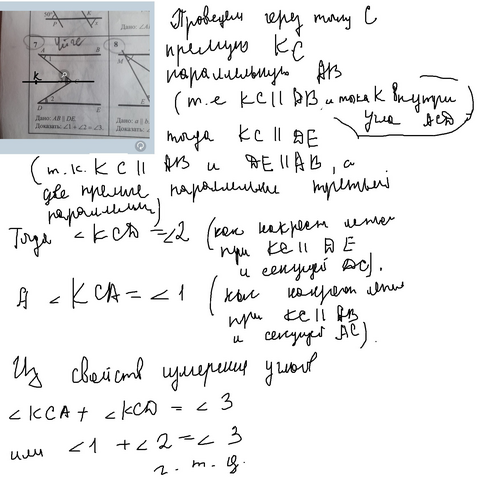 7
8
A
B
M
K
D
E
Дано: AB ∥ DE.
Доказать: ∠1 + ∠2 = ∠3.
Проведем через точку C
прямую KC
параллельную AB
(т.е KC ∥ AB и точка K внутри
угла ACD)
тогда KC ∥ DE
(т.к. KC ∥ AB и DE ∥ AB, а
две прямые параллельные третьей
параллельны)
Тогда ∠KCD = ∠2 (как накрест лежащие
при KC ∥ DE
и секущей DC).
А ∠KCA = ∠1 (как накрест лежащие
при KC ∥ AB
и секущей AC).
Из свойств измерения углов
∠KCA + ∠KCD = ∠3
или ∠1 + ∠2 = ∠3
ч.т.д.